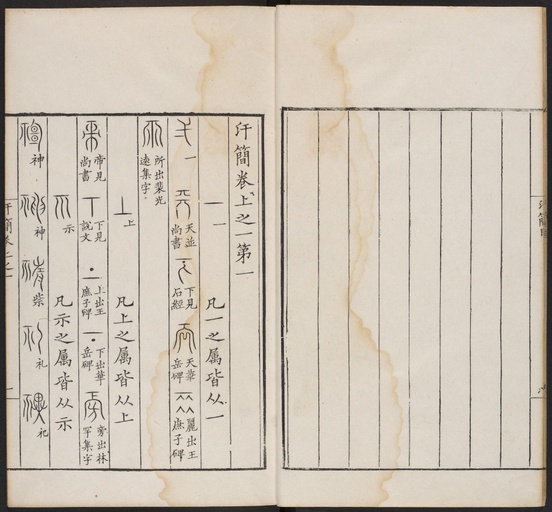 汗簡卷上之一第一
一 一 凡一之属皆从一
一 天並尚書 下見石經 天華岳碑 麗出王庶子碑
所出裴光遠集字
丄 上 凡上之属皆从上
帝見尚書 丅 下見說文 上出王庶子碑 下出華岳碑 旁出林罕集字
示 凡示之属皆从示
神 神 柴 礼 祀